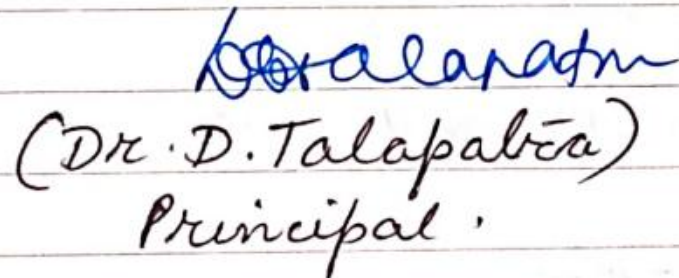 (Dr. D. Talapatra)
Principal.